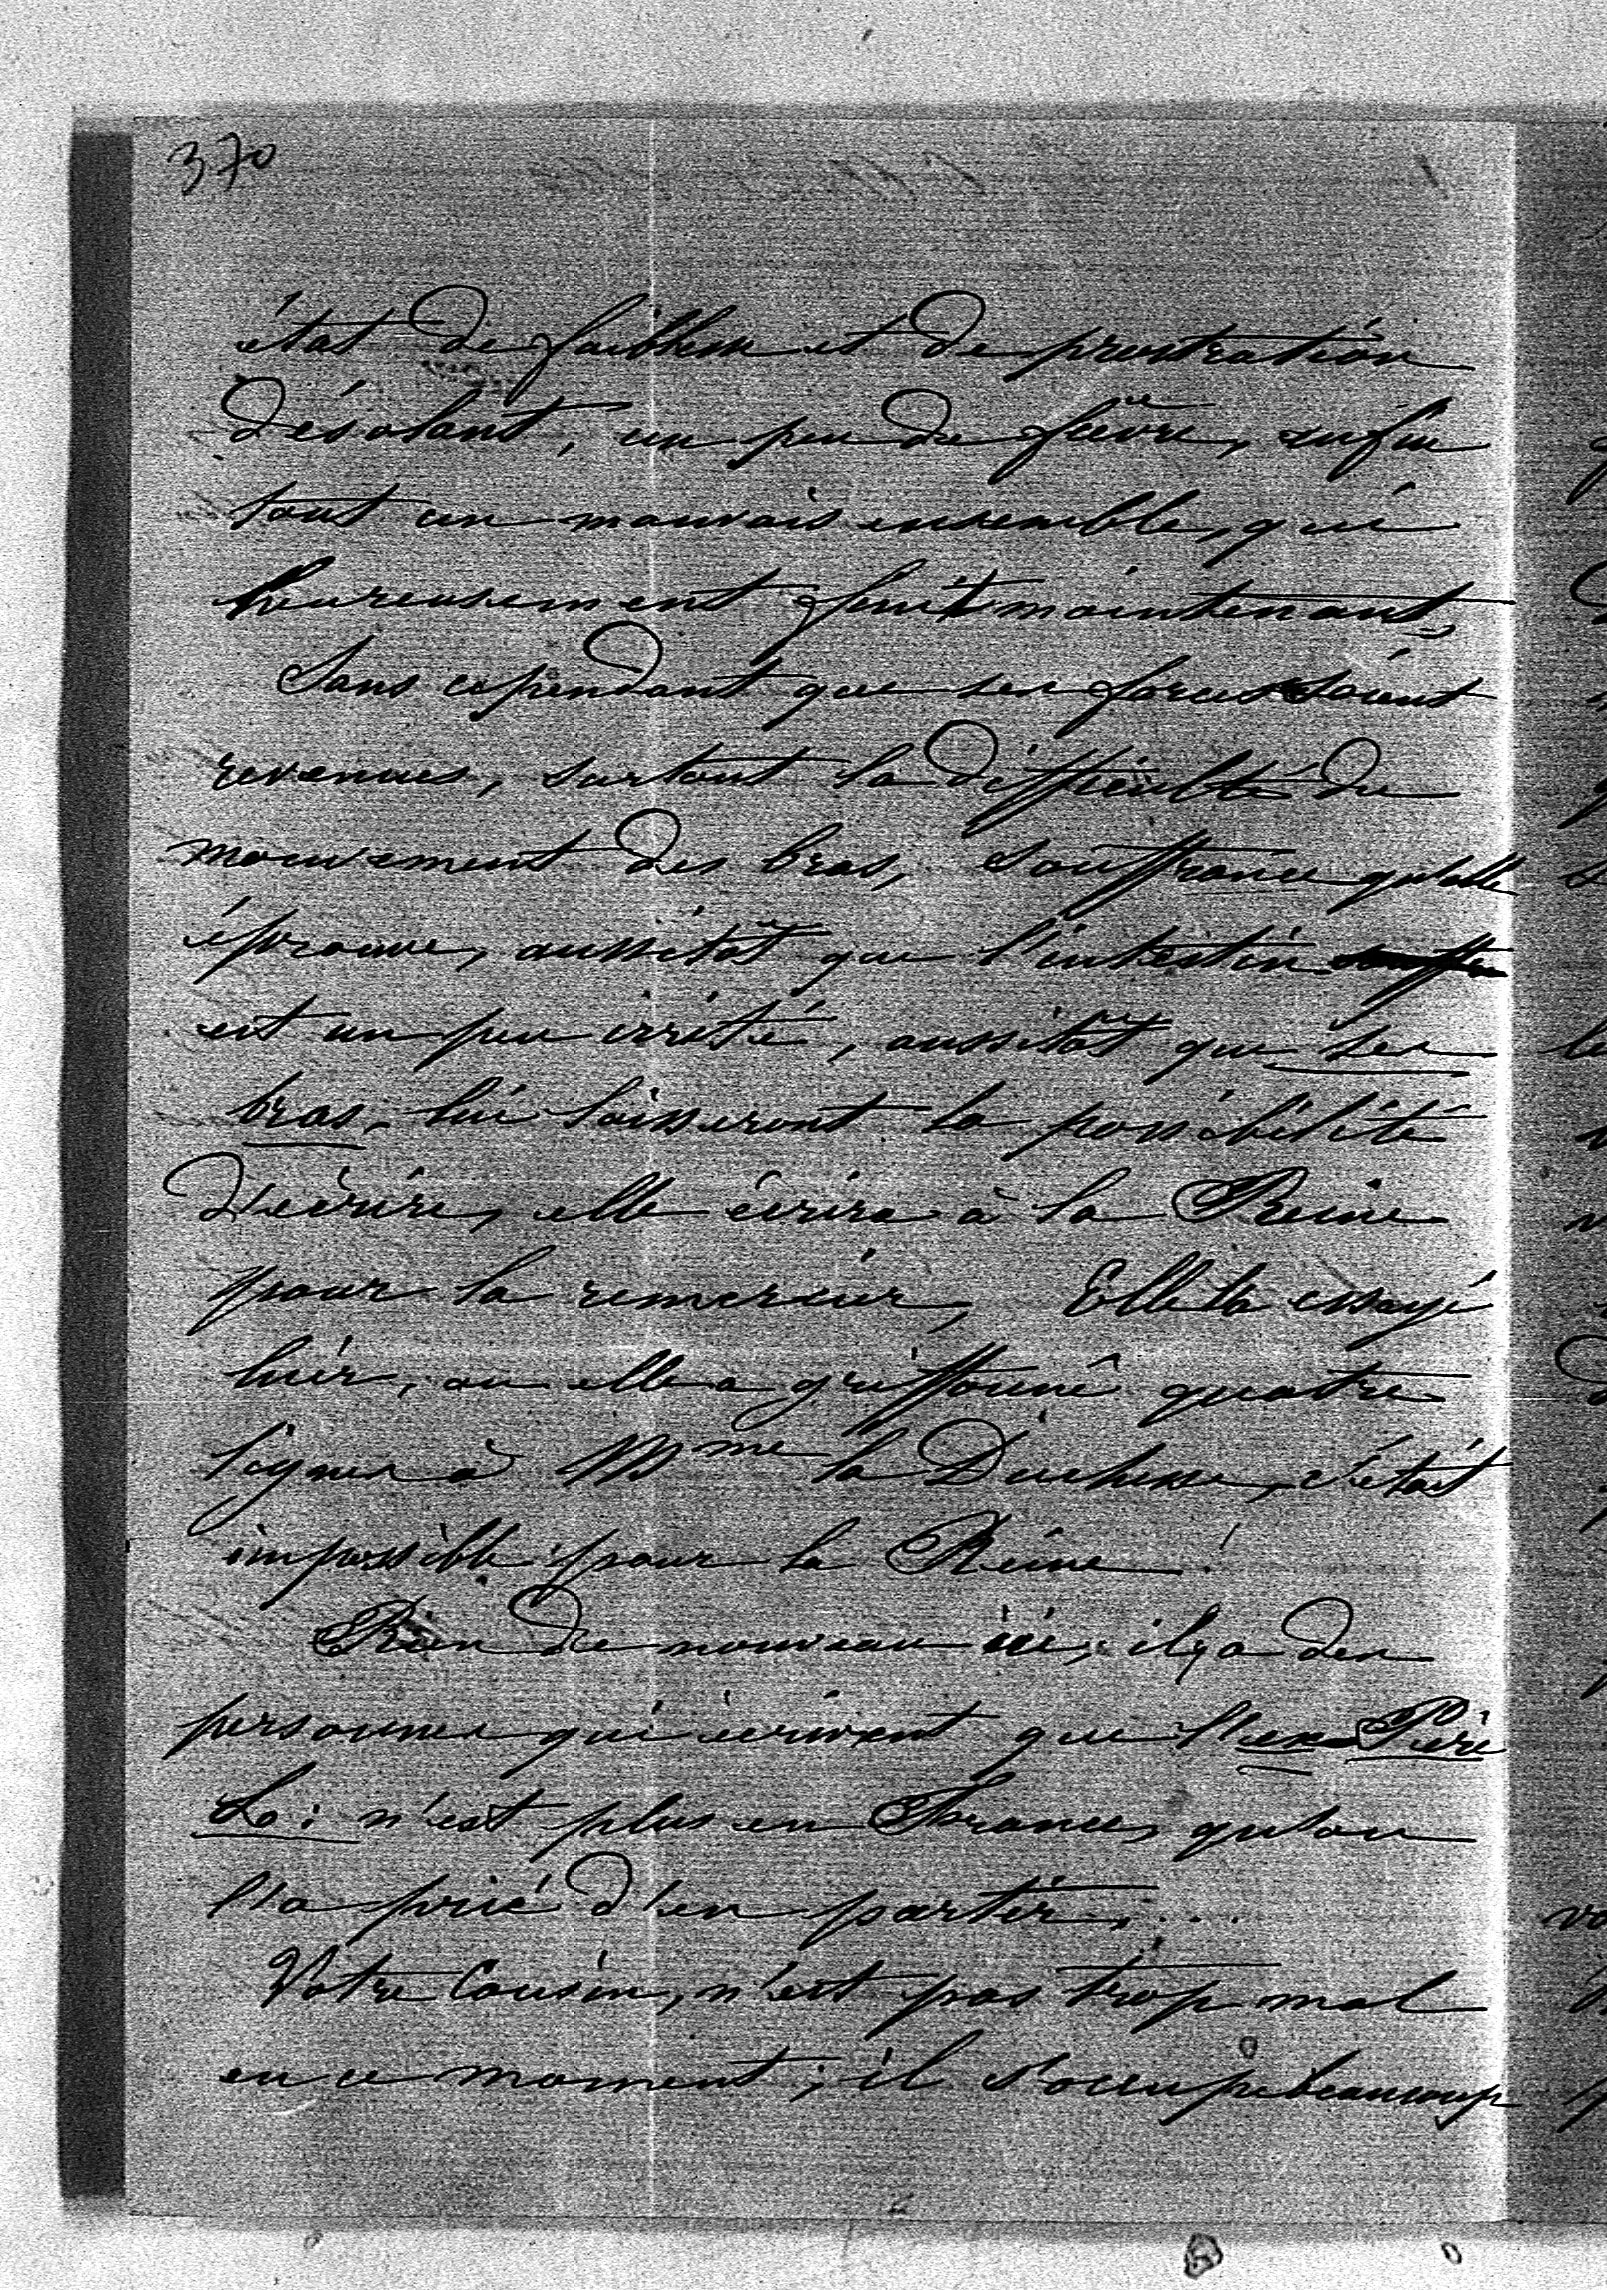 370
état de faiblesse et de prostration
désolant, un peu de fièvre, enfin
tout un mauvais ensemble, qui
heureusement finit maintenant,
Sans cependant que ses forces soient
revenues, surtout la difficulté du
mouvement des bras, souffrance qu'elle
éprouve, aussitôt que l'intestin souffre
est un peu irrité, aussitôt que ses
bras, lui laisseront la possibilité
d'écrire, elle écrira à la Reine
pour la remercier, Elle l'a essayé
hièr, ou elle a griffonné quatre
lignes à Mme la Duchesse, c'était
impossible pour la Reine!
Rien de nouveau ici, il y a des
personnes qui écrivent que l'ex Père
Lo: n'est plus en France, qu'on
l'a prié d'en partir,....
Votre Cousin, n'est pas trop mal
en ce moment; il s'occupe beaucoup